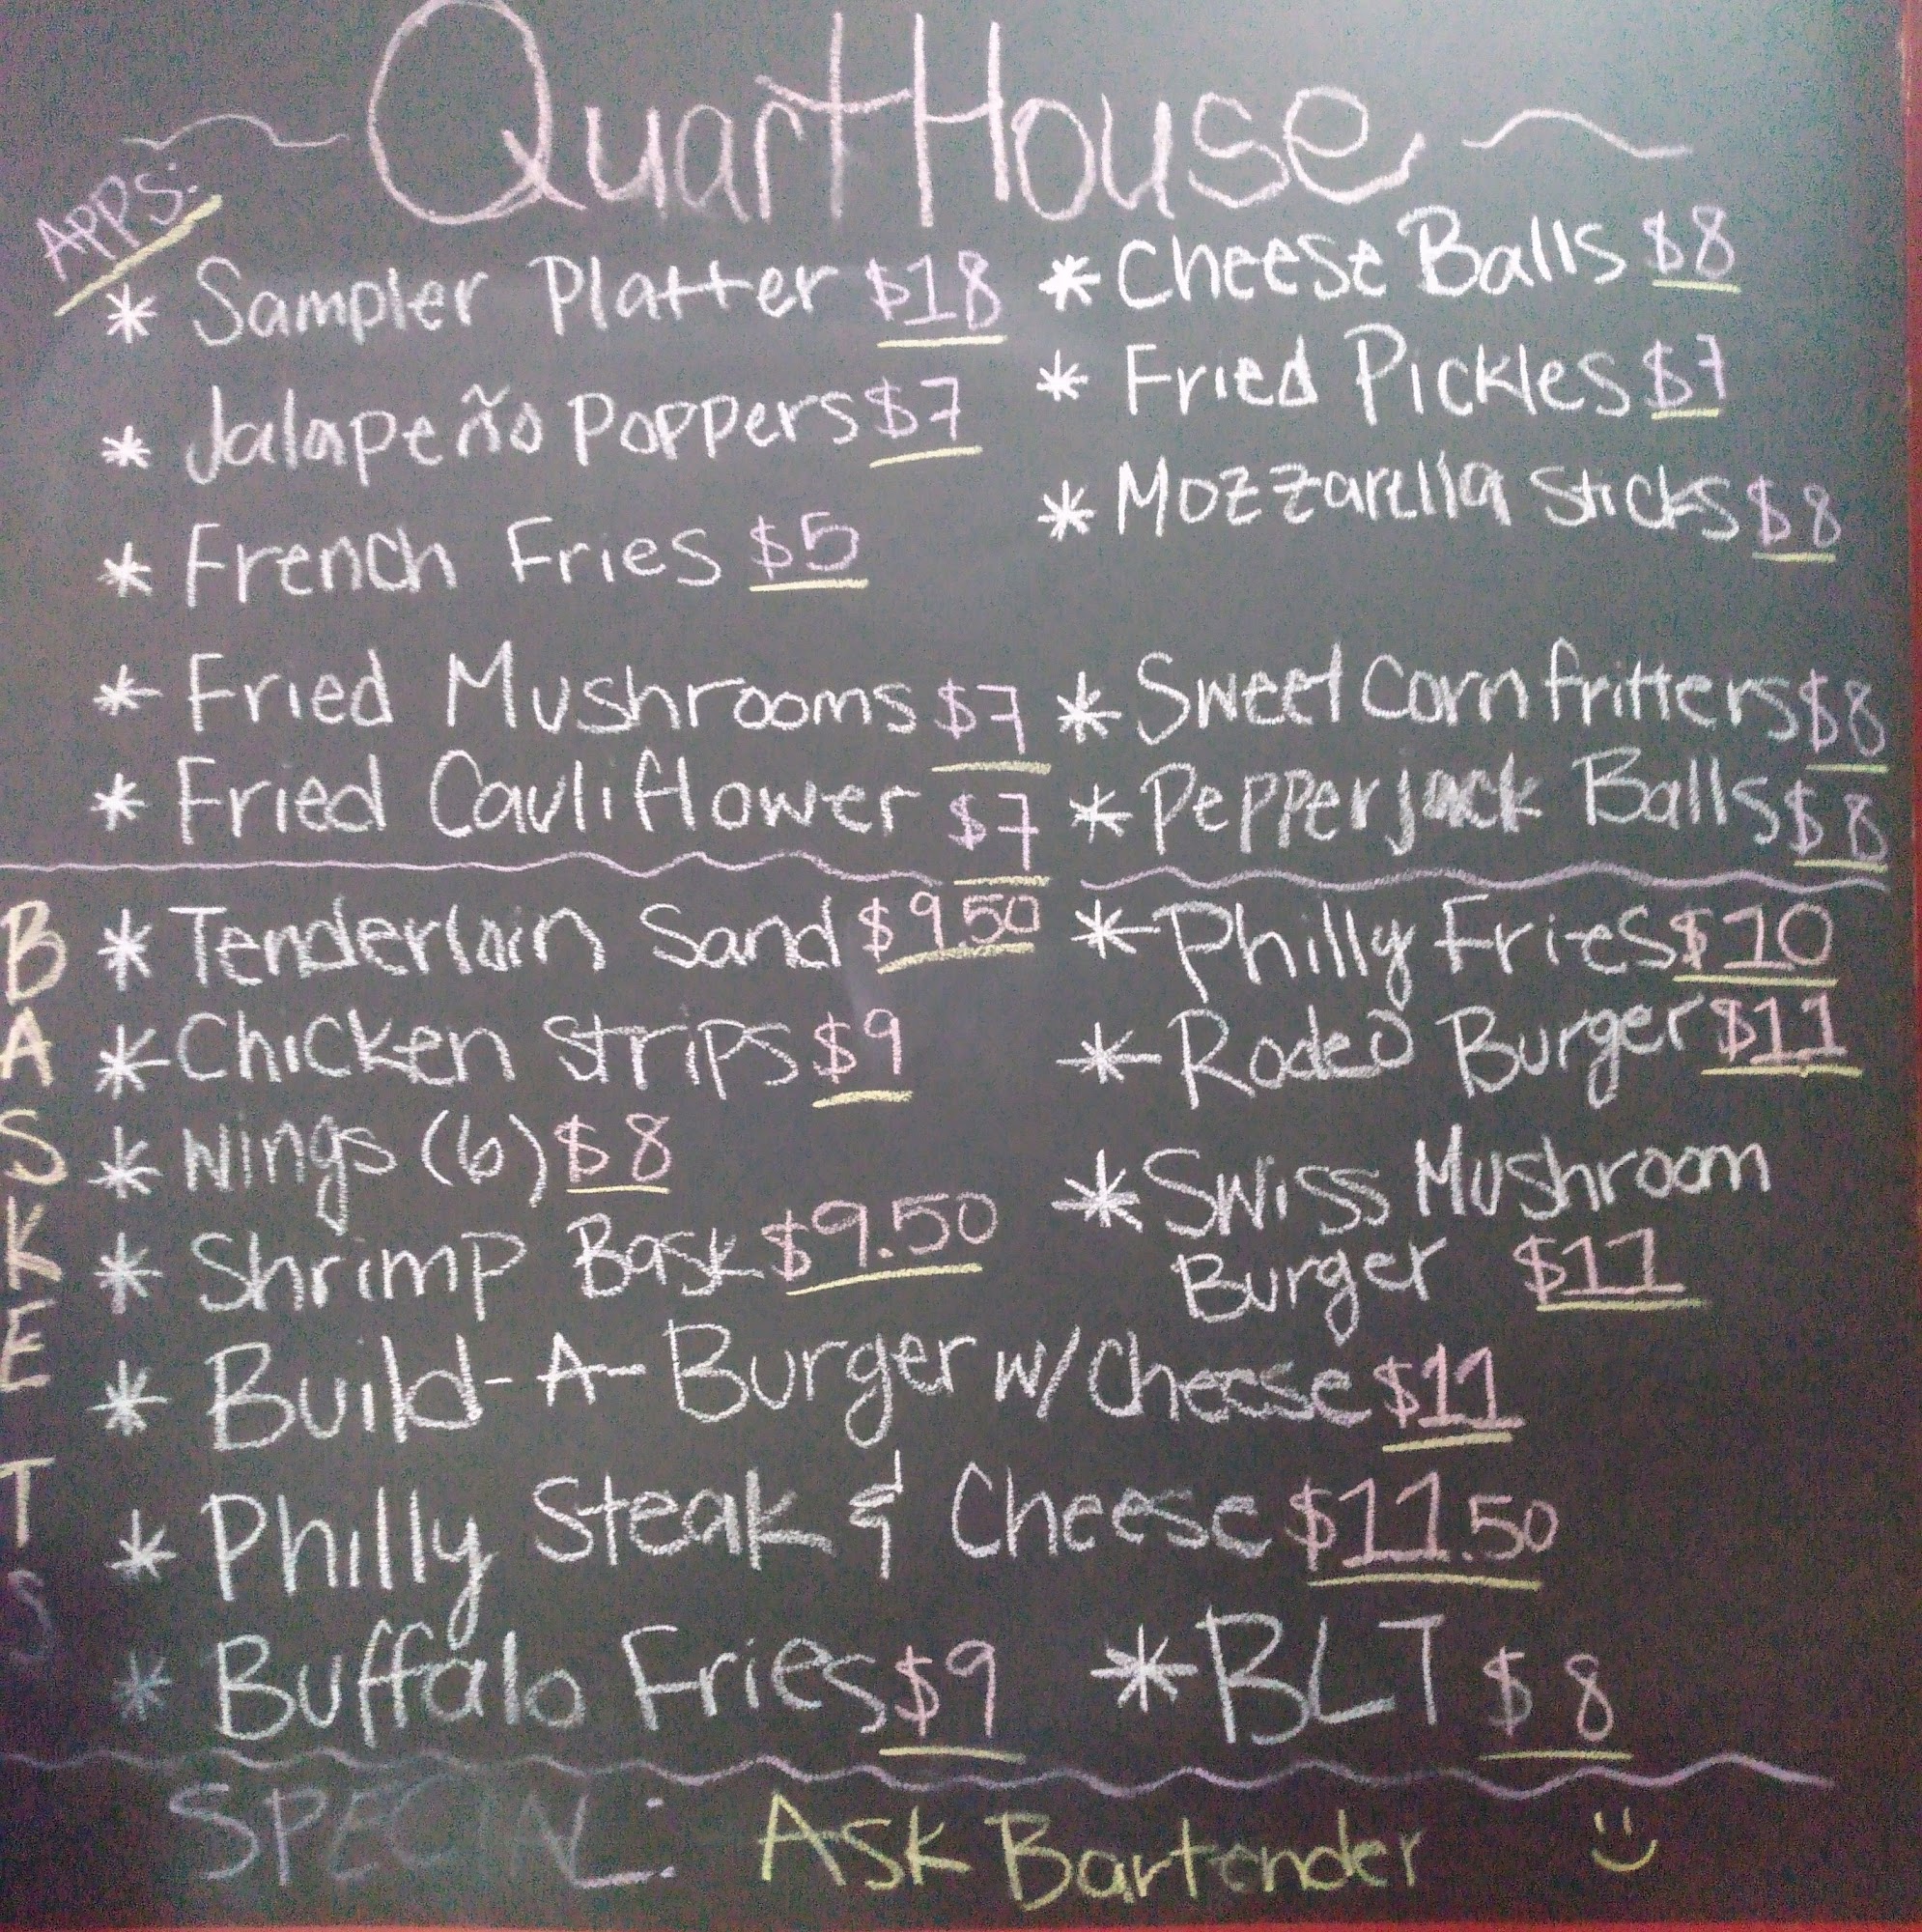 QuartHouse
APPS:
* Sampler Platter $18
* Jalapeño Poppers $7
* French Fries $5
* Fried Mushrooms $7
* Fried Cauliflower $7
* Cheese Balls $8
* Fried Pickles $7
* Mozzarella Sticks $8
* Sweet Corn fritters $8
* Pepperjack Balls $8
BASKETS
* Tenderloin Sand $9.50
* Chicken Strips $9
* Wings (6) $8
* Shrimp Bask $9.50
* Philly Fries $10
* Rodeo Burger $11
* Swiss Mushroom
Burger $11
* Build-A-Burger w/ Cheese $11
* Philly Steak & Cheese $11.50
* Buffalo Fries $9
* BLT $8
SPECIAL: Ask Bartender